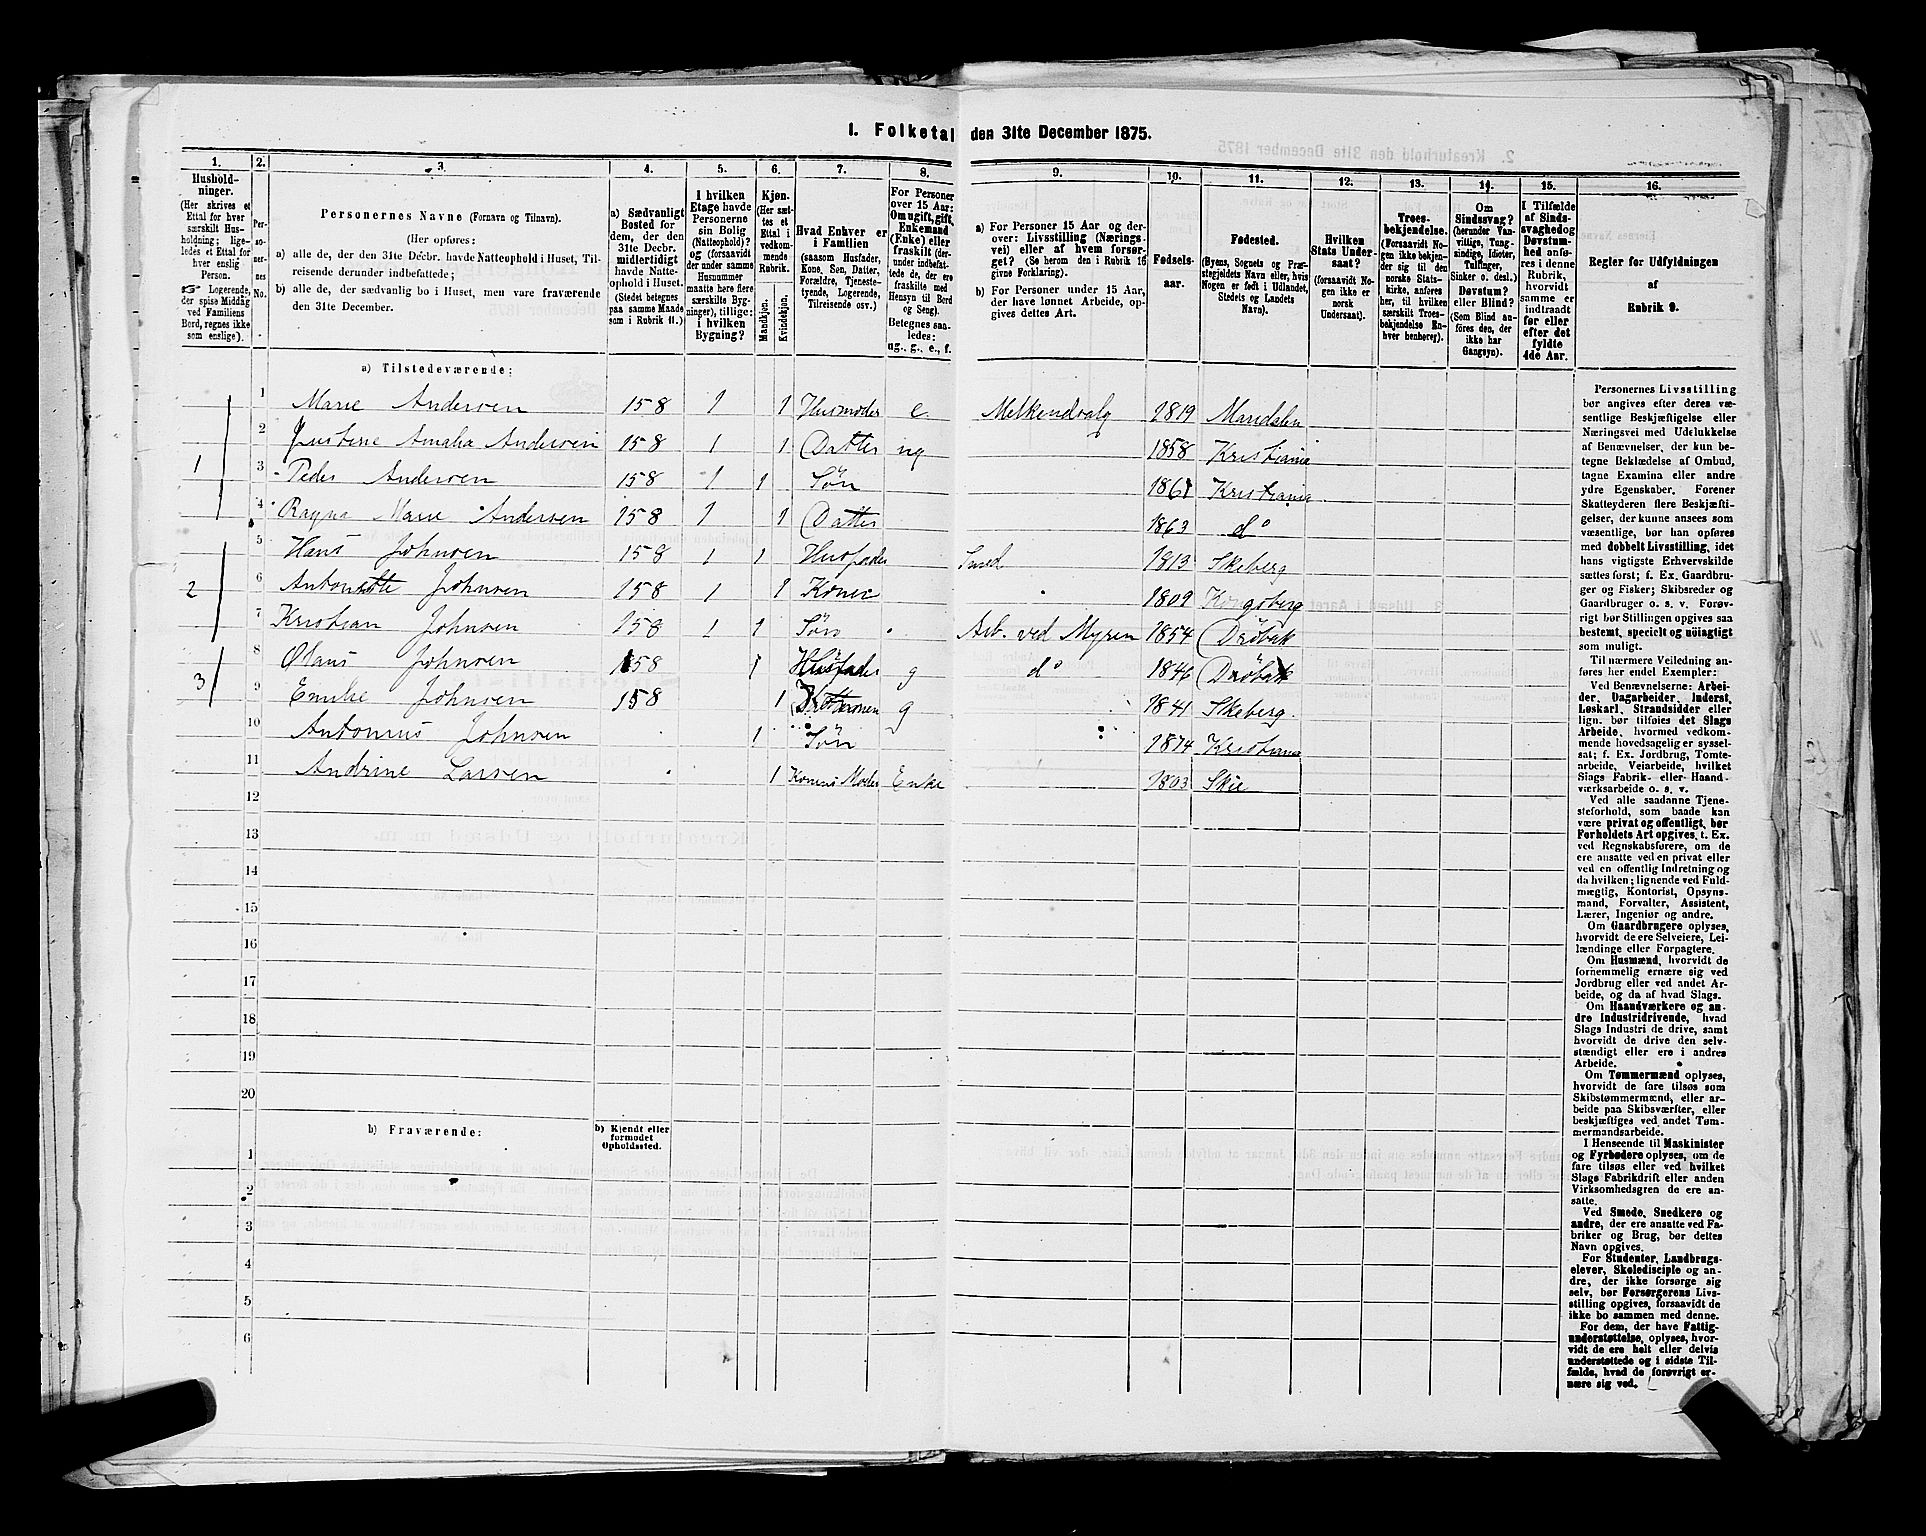 I. Folketal den 31te December 1875.
1. 2. 3. 4. 5. 6. 7. 8. 9. 10. 11. 12. 13. 14. 15. 16.
Hushold-
ninger.
(Her skrives et
Ettal for hver
særskilt Hus-
holdning; lige-
ledes et Ettal for
hver enslig
Person.
☞ Logerende,
der spise Middag
ved Familiens
Bord, regnes ikke
som enslige).
Per-
so-
ner-
nes
No.
Personernes Navne (Fornavn og Tilnavn).
(Her opføres:
a) alle de, der den 31te Decbr. havde Natteophold i Huset, Til-
reisende derunder indbefattede;
b) alle de, der sædvanlig bo i Huset, men vare fraværende
den 31te December.
a) Sædvanligt
Bosted for
dem, der den
31te Decbr.
midlertidigt
havde Natte-
ophold i Huset.
(Stedet betegnes
paa samme Maade
som i Rubrik 11.)
I hvilken
Etage havde
Personerne
sin Bolig
(Natteophold)?
og (forsaavidt
der under samme
Husnummer
maatte høre flere
særskilte Byg-
ninger), tillige:
i hvilken
Bygning?
Kjøn.
(Her sæt-
tes et
Ettal i
vedkom-
mende
Rubrik.
Mandkjøn.
Kvindekjøn.
Hvad Enhver er
i Familien
(saasom Husfader,
Kone, Søn, Datter,
Forældre, Tjeneste-
tyende, Logerende,
Tilreisende osv.)
For Personer
over 15 Aar:
Om ugift, gift,
Enkemand
(Enke) eller
fraskilt (der-
under indbefat-
tede de, der ere
fraskilte med
Hensyn til Bord
og Seng).
Betegnes saa-
ledes:
ug., g., e., f.
a) For Personer 15 Aar og der-
over: Livsstilling (Nærings-
vei) eller af hvem forsør-
get? (Se herom den i Rubrik 16
givne Forklaring).
b) For Personer under 15 Aar,
der have lønnet Arbeide, op-
gives dettes Art.
Fødsels-
aar.
Fødested.
(Byens, Sognets og Præ-
stegjeldets Navn eller, hvis
Nogen er født i Udlandet,
Stedets og Landets
Navn).
Hvilken
Stats Under-
saat?
(forsaavidt No-
gen ikke er
norsk
Undersaat).
Troes-
bekjendelse.
(Forsaavidt No-
gen ikke bekjen-
der sig til den
norske Stats-
kirke, anføres
her, til hvilken
særskilt Troes-
bekjendelse En-
hver henhører).
Om
Sindssvag?
(herunder Van-
vittige, Tung-
sindige, Idioter,
Tullinger,
Sinker o. desl.)
Døvstum?
eller Blind?
(Som Blind an-
føres den, der
ikke har
Gangsyn).
I Tilfælde
af Sinds-
svaghed og
Døvstum-
hed anfø-
res i denne
Rubrik,
hvorvidt
samme er
indtraadt
før eller
efter det
fyldte
4de Aar.
Regler for Udfyldningen
af
Rubrik 9.
a) Tilstedeværende:
1 Marie Andersen 158 1 1 Husmoder e. Melkeudsalg 1819 Maridalen
2 Justine Amalia Andersen 158 1 1 Datter ug 1858 Kristiania
1
3 Peder Andersen 158 1 1 Søn 1861 Kristiania
4 Ragna Marie Andersen 158 1 1 Datter 1863 do
5 Hans Johnsen 158 1 1 Husfader Smed 1813 Skeberg
2 6 Antonette Johnsen 158 1 1 Konee 1809 Kongsberg
7 Kristian Johnsen 158 1 1 Søn Arb. ved Myren 1854 Drøbak
8 Olaus Johnsen 158 1 Husfader g do 1846 Drøbak
3
9 Emilie Johnsen 158 1 Konen g 1841 Skeberg.
10 Antonius Johnsen 1 Søn 1874 Kristiania
11 Andrine Larsen 1 Konens Moder Enke 1803 Skie
12
13
14
15
16
17
18
19
20
b) Fraværende:
b) Kjendt eller
formodet
Opholdssted.
1
2
3
4
5
6
Personernes Livsstilling
bør angives efter deres væ-
sentlige Beskjæftigelse eller
Næringsvei med Udelukkelse
af Benævnelser, der kun be-
tegne Beklædelse af Ombud,
tagne Examina eller andre
ydre Egenskaber. Forener
Skatteyderen flere Beskjæfti-
gelser, der kunne ansees som
væsentlige, bør han opføres
med dobbelt Livsstilling, idet
hans vigtigste Erhvervskilde
sættes først; f. Ex. Gaardbru-
ger og Fisker; Skibsreder og
Gaardbruger o. s. v. Forøv-
rigt bør Stillingen opgives saa
bestemt, specielt og nøiagtigt
som muligt.
Til nærmere Veiledning an-
føres her endel Exempler:
Ved Benævnelserne: Arbei-
der, Dagarbeider, Inderst,
Løskarl, Strandsidder eller
lign. bør tilføies det Slags
Arbeide, hvormed vedkom-
mende hovedsagelig er syssel-
sat; f. Ex. Jordbrug, Tomte-
arbeide, Veiarbeide, hvilket
Slags Fabrik- eller Haand-
værksarbeide o. s. v.
Ved alle saadanne Tjene-
steforhold, som baade kan
være privat og offentligt, bør
Forholdets Art opgives, t. Ex.
ved Regnskabsførere, om de
ere ansatte ved en privat eller
ved en offentlig Indretning og
da hvilken; lignende ved Fuld-
mægtig, Kontorist, Opsyns-
mand, Forvalter, Assistent,
Lærer, Ingeniør og andre.
Om Gaardbrugere oplyses,
hvorvidt de ere Selveiere, Lei-
lændinge eller Forpagtere.
Om Husmænd, hvorvidt de
fornemmelig ernære sig ved
Jordbrug eller ved andet Ar-
beide, og da af hvad Slags.
Om Haandværkere og an-
dre Industridrivende, hvad
Slags Industri de drive, samt
hvorvidt de drive den selv-
stændigt eller ere i andres
Arbeide.
Om Tømmermænd oplyses,
hvorvidt de fare tilsøs som
Skibstømmermænd, eller ar-
beide paa Skibsværfter, eller
beskjæftiges ved andet Tøm-
mermandsarbeide.
I Henseende til Maskinister
og Fyrbødere oplyses, om de
fare tilsøs eller ved hvilket
Slags Fabrikdrift eller anden
Virksomhedsgren de ere an-
satte.
Ved Smede, Snedkere og
andre, der ere ansatte ved Fa-
briker og Brug, bør dettes
Navn opgives.
For Studenter, Landbrugs-
elever, Skoledisciple og an-
dre, der ikke forsørge sig
selv, bør Forsørgerens Livs-
stilling opgives, forsaavidt de
ikke bo sammen med denne.
For dem, der have Fattig-
understøttelse, oplyses, hvor-
vidt de ere helt eller delvis
understøttede og i sidste Til-
fælde, hvad de forøvrigt er-
nære sig ved.